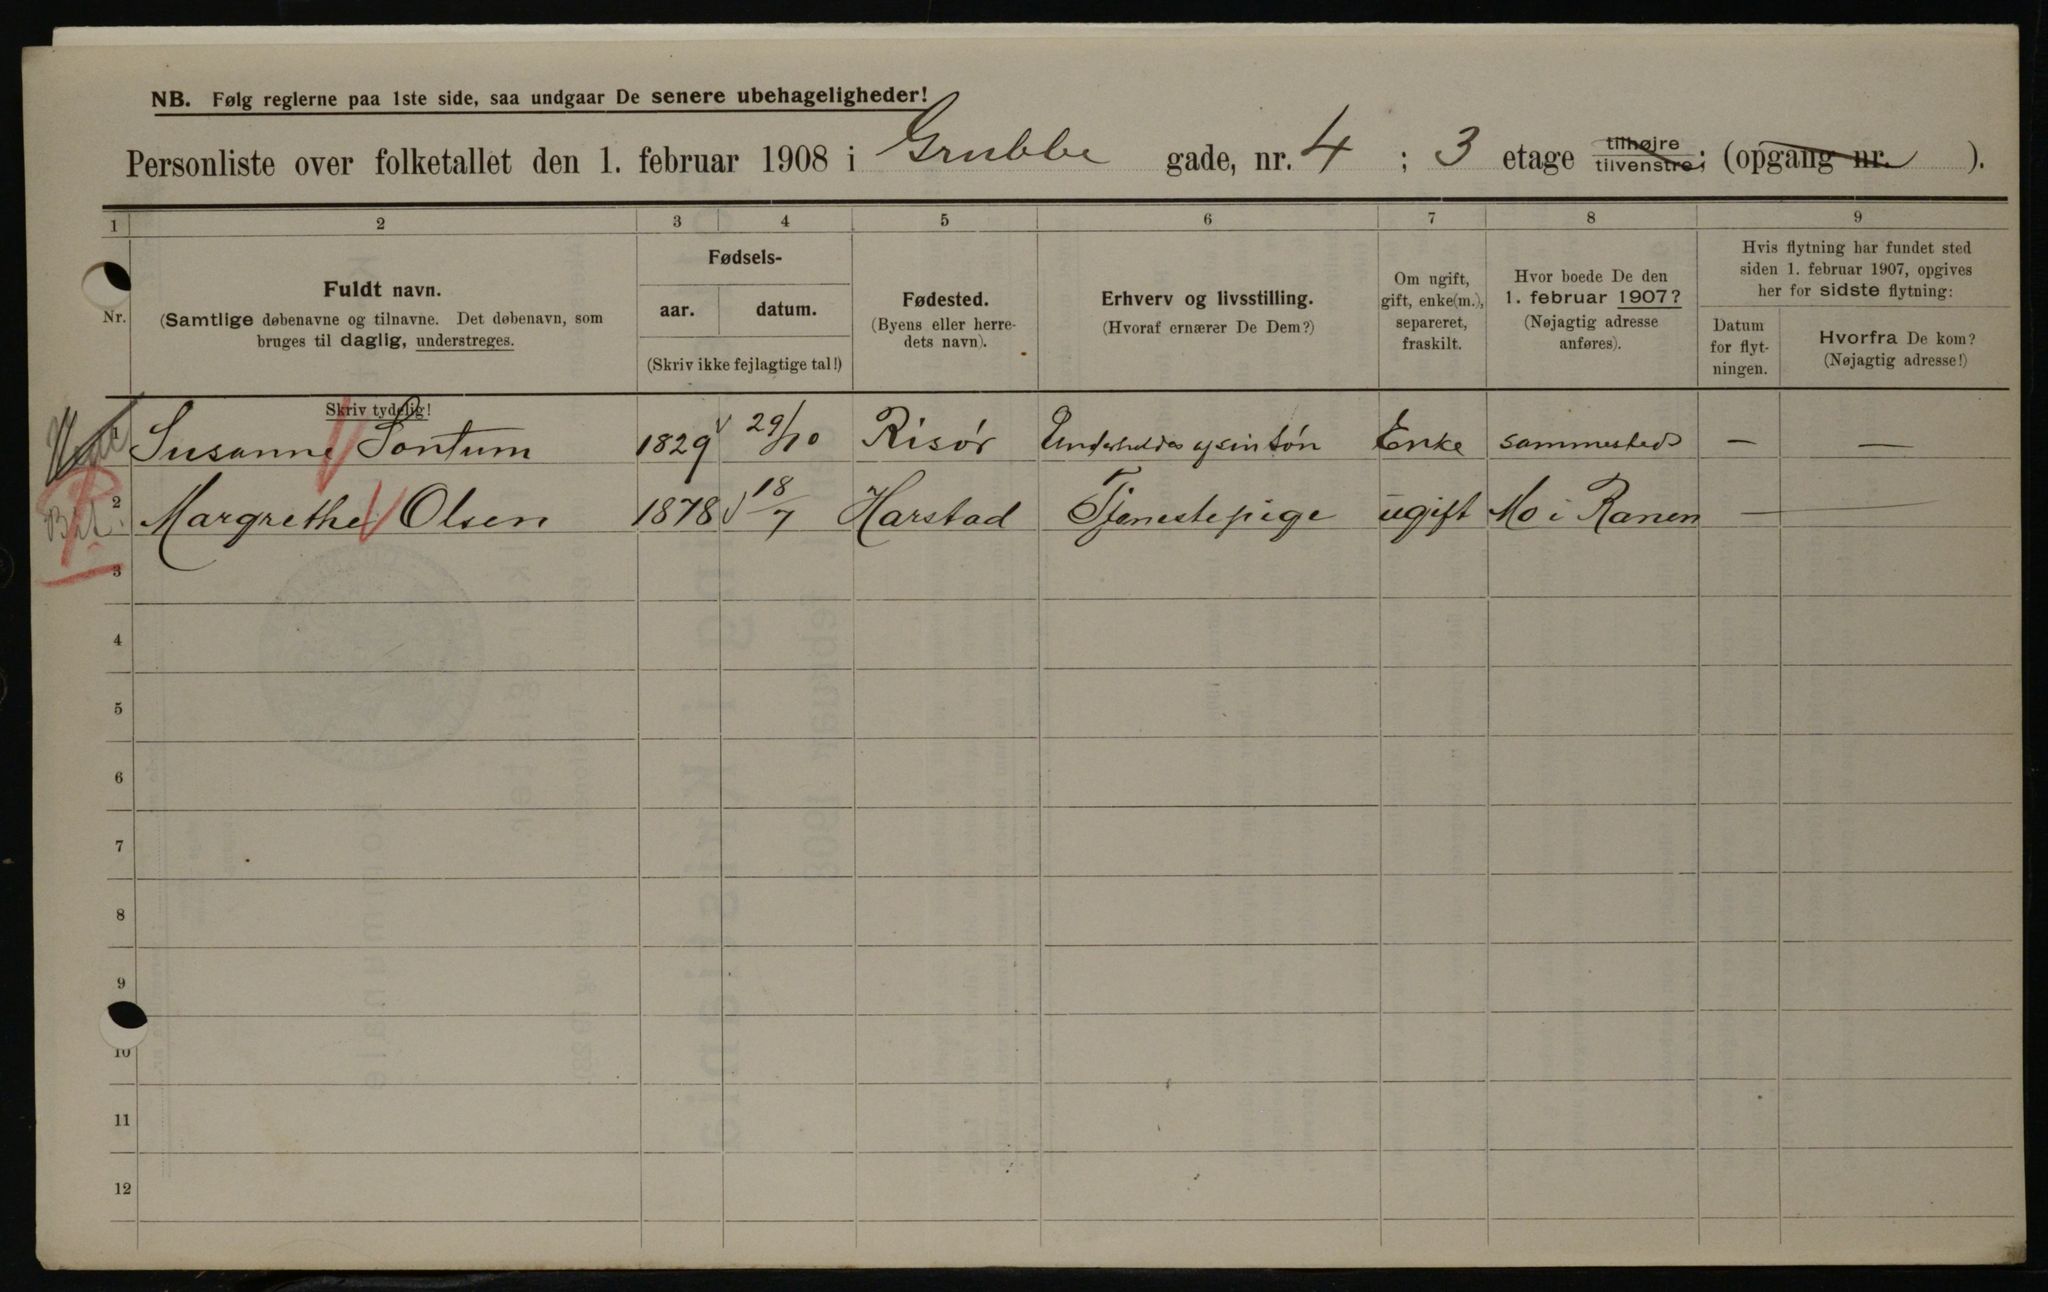 NB. Følg reglerne paa 1ste side, saa undgaar De senere ubehageligheder!
Personliste over folketallet den 1. februar 1908 i Grubbe gade, nr. 4 ; 3 etage tilhøjre tilvenstre; (opgang nr. ).
1 2 3 4 5 6 7 8 9
Nr.
Fuldt navn.
(Samtlige døbenavne og tilnavne. Det døbenavn, som
bruges til daglig, understreges.
Skriv tydelig!
Fødsels-
aar. datum.
(Skriv ikke fejlagtige tal!)
Fødested.
(Byens eller herre-
dets navn).
Erhverv og livsstilling.
(Hvoraf ernærer De Dem?)
Om ugift,
gift, enke(m.),
separeret,
fraskilt.
Hvor boede De den
1. februar 1907?
(Nøjagtig adresse
anføres).
Hvis flytning har fundet sted
siden 1. februar 1907, opgives
her for sidste flytning:
Datum
for flyt-
ningen.
Hvorfra De kom?
(Nøjagtig adresse!)
1 Susanne Sontum 1829 29/10 Risór Underholdes af sin són Enke sammesteds — —
2 Margrethe Olsen 1878 18/7 Harstad Tjenestepige ugift Mo i Ranen — —
3
4
5
6
7
8
9
10
11
12